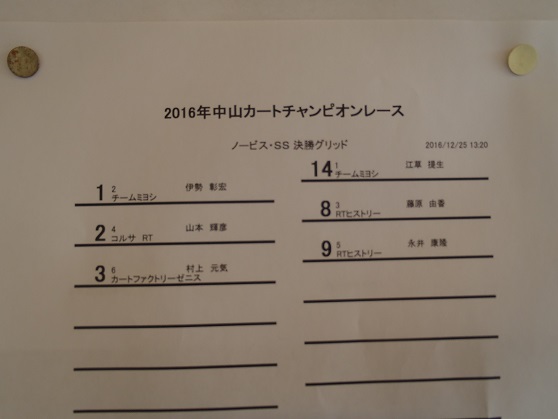 2016年中山カートチャンピオンレース
ノービス・SS 決勝グリッド
2016/12/25 13:20
14 1 江草 提生
チームミヨシ
1 2 伊勢 彰宏
チームミヨシ
8 3 藤原 由香
RTヒストリー
2 4 山本 輝彦
コルサ RT
9 5 永井 康隆
RTヒストリー
3 6 村上 元気
カートファクトリーゼニス